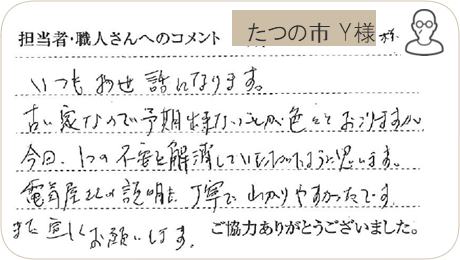 担当者・職人さんへのコメント たつの市 Y様
いつもお世話になります。
古い家なので予期せぬことが色々とおこりますが、
今回、1つの不安を解消していただけたように思います。
電気屋さんの説明も丁寧でわかりやすかったです。
また宜しくお願いします。 ご協力ありがとうございました。